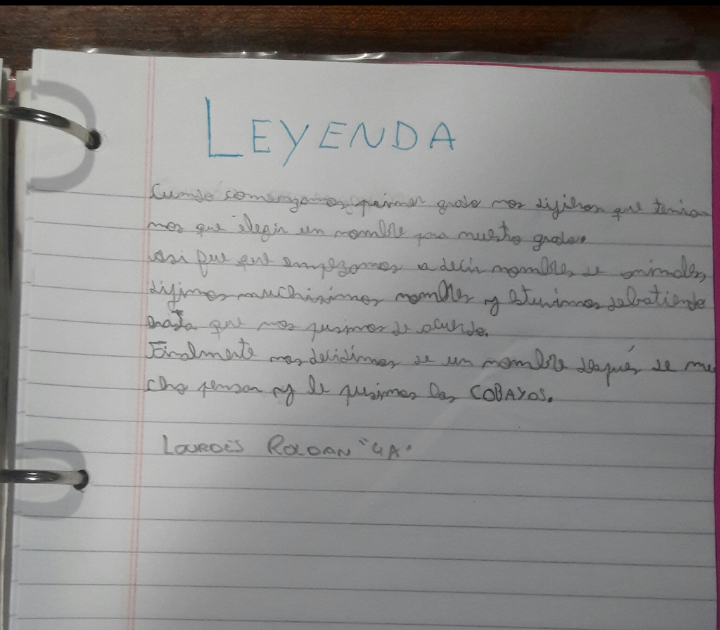 LEYENDA
Cundo comenzamos primer grado nos dijieron que tenia
mos que elegir un nombre para nuestro grado.
Asi fue que empezamos a decir nombres de animales,
dijimos muchisimos nombres y estuvimos debatiendo
hasta que nos pusimos de acuerdo.
Finalmente nos decidimos de un nombre después de mu
cho pensar y le pusimos los COBAYOS.
LOURDES ROLDAN "4A"